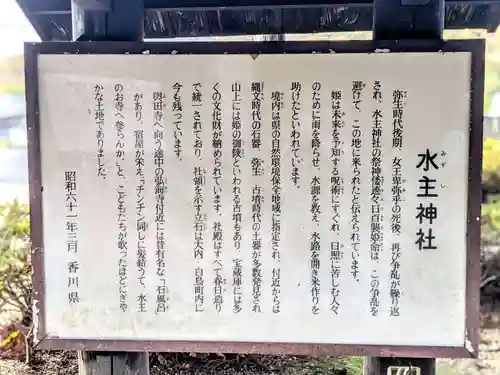 水主神社
みずし
弥生時代後期、女王卑弥乎の死後、再び争乱が繰り返
され、水主神社の祭神倭迹々日百襲姫命は、この争乱を
避けて、この地に来られたと伝えられています。
姫は未来を予知する呪術にすぐれ、日照に苦しむ人々
のために雨を降らせ、水源を教え、水路を開き米作りを
助けたといわれています。
境内は県の自然環境保全地域に指定され、付近からは
縄文時代の石器、弥生、古墳時代の土器が多数発見され
山上には姫の御陵といわれる古墳もあり、宝蔵庫には多
くの文化財が納められています。社殿はすべて春日造り
で統一されており、社領を示す立石は大内・白鳥町内に
今も残っています。
奥田寺へ向う途中の弘海寺付近には昔有名な「石風呂」
があり、宿屋が栄え「チンチン同しに髪結うて、水主
のお寺へ参らんか」と、こどもたちが歌ったほどにぎや
かな土地でありました。
昭和六十二年三月 香川県